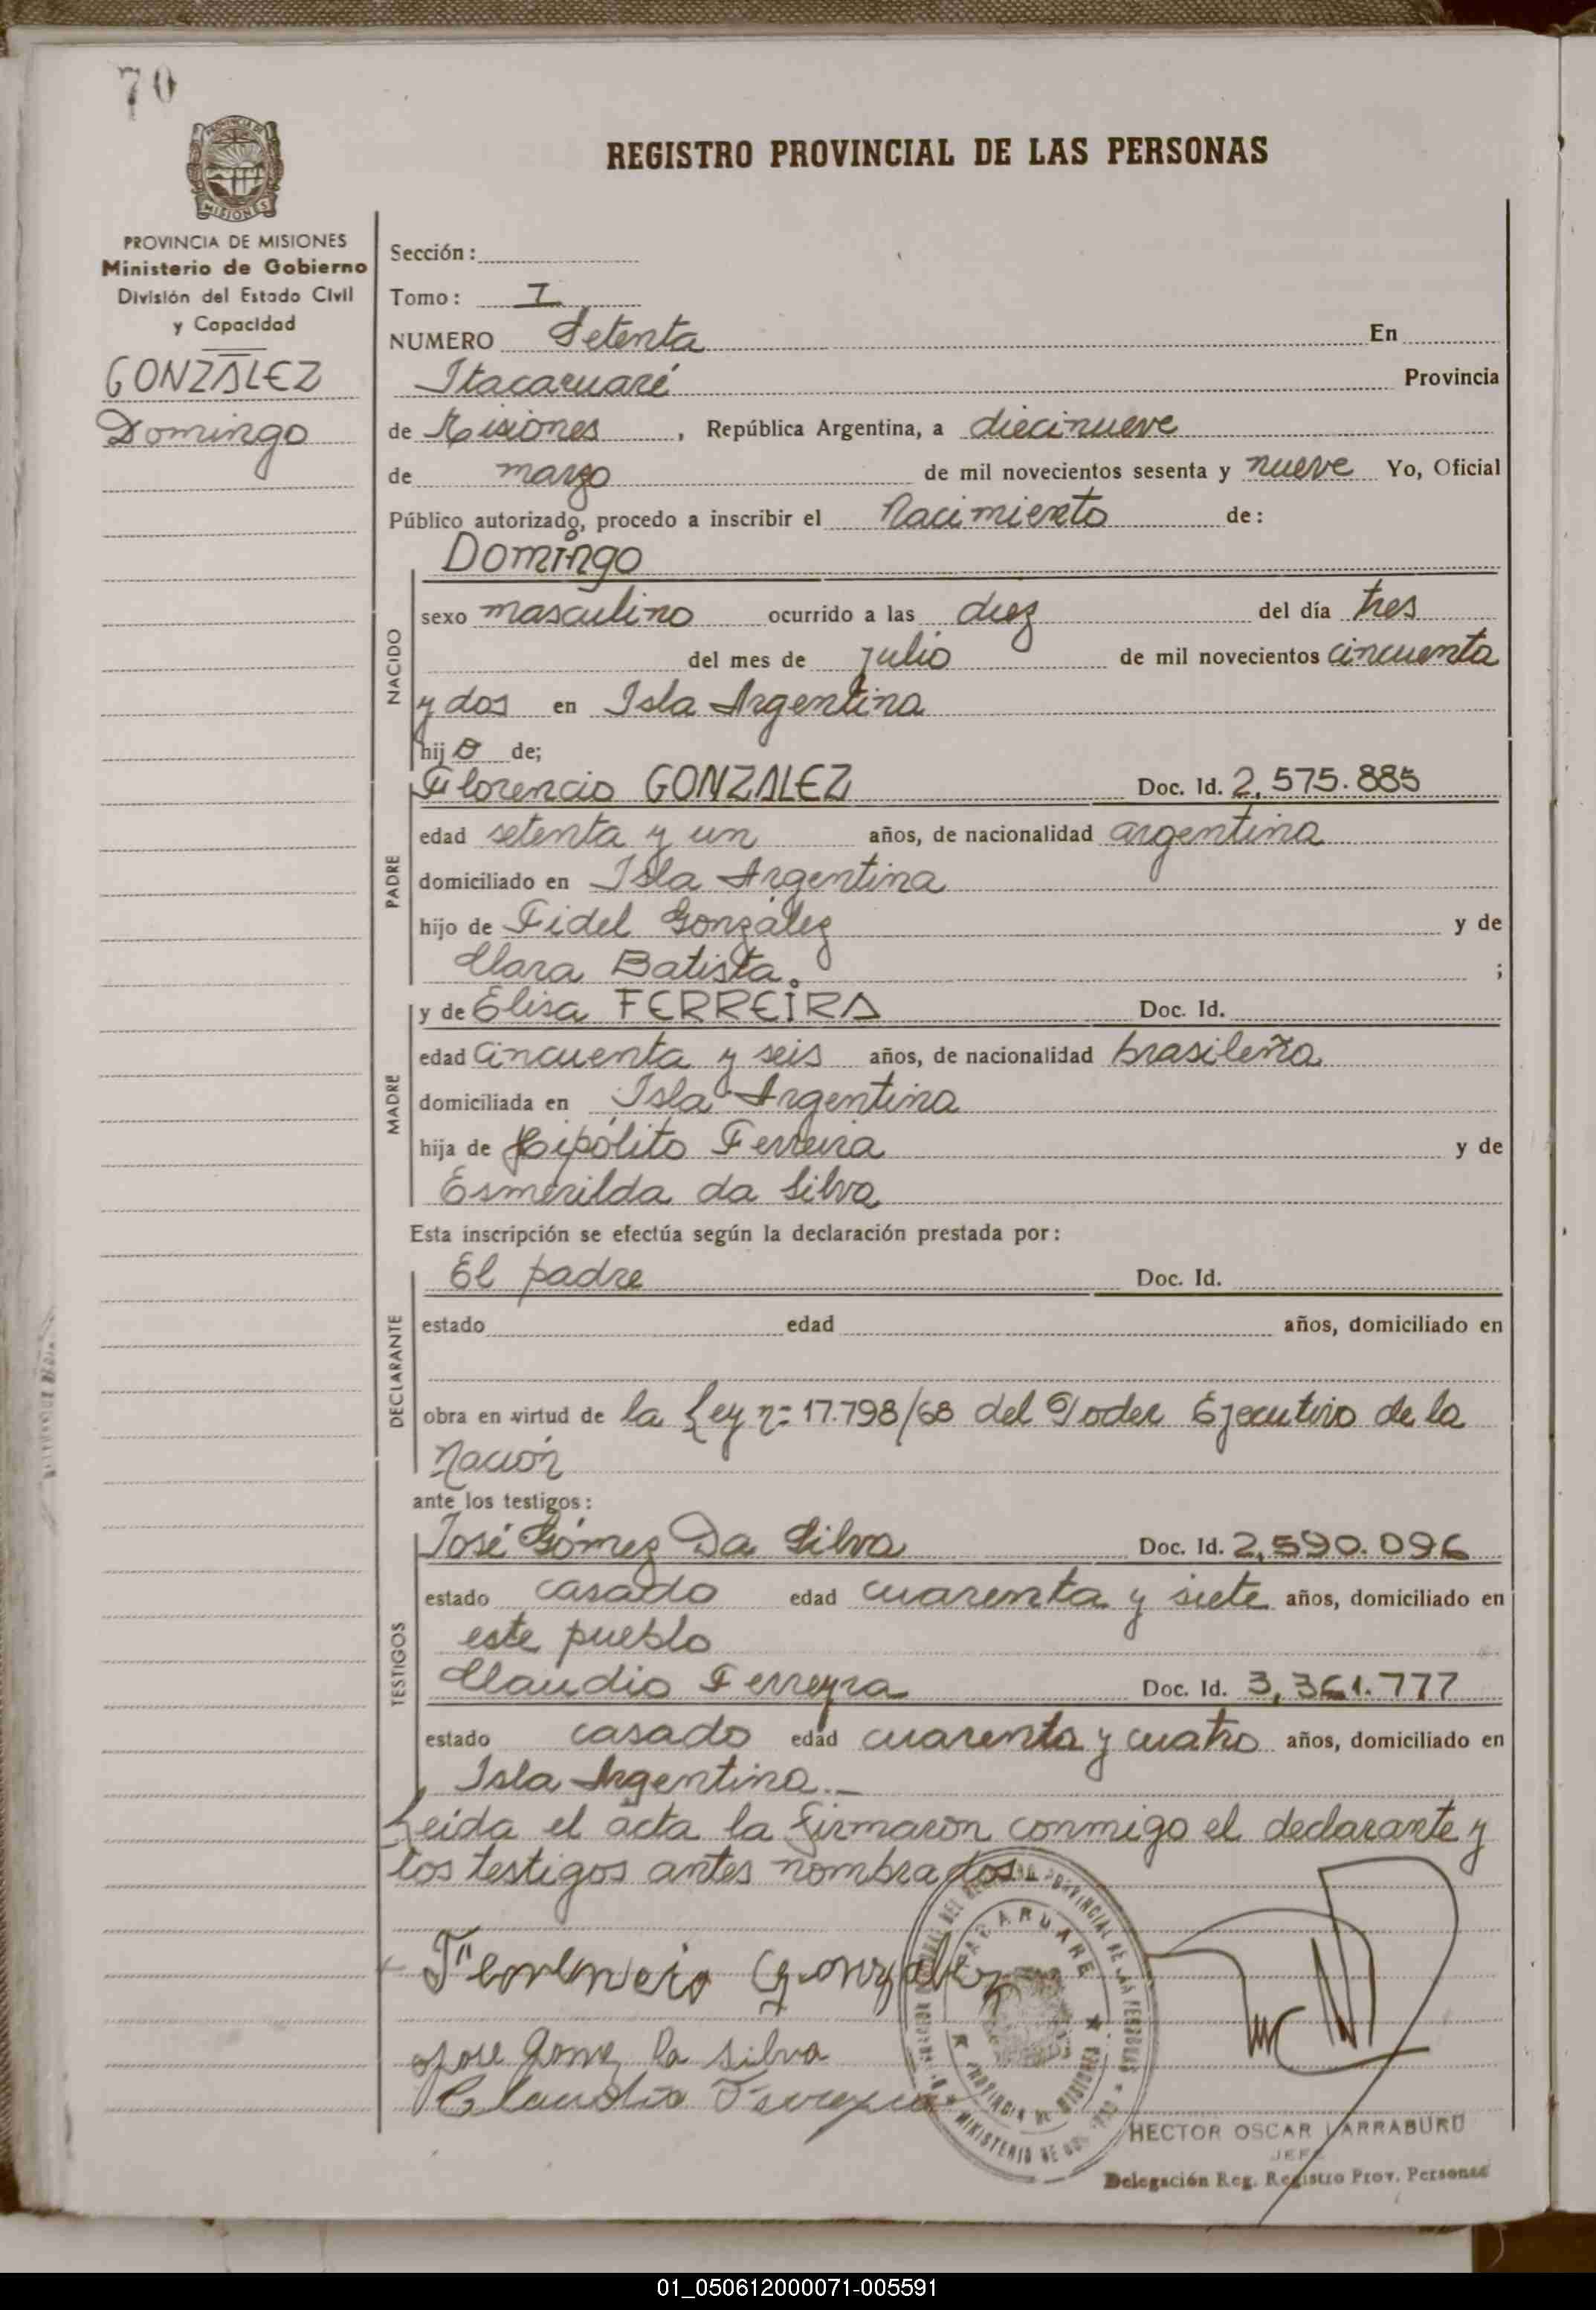 70
PROVINCIA DE
MISIONES
REGISTRO PROVINCIAL DE LAS PERSONAS
PROVINCIA DE MISIONES
Ministerio de Gobierno
División del Estado Civil
y Capacidad
GONZALEZ
Domingo
Sección:
Tomo: I
NUMERO Setenta En
Itacaruaré Provincia
de Misiones, República Argentina, a diecinueve
de marzo de mil novecientos sesenta y nueve Yo, Oficial
Público autorizado, procedo a inscribir el Nacimiento de:
NACIDO
Domingo
sexo masculino ocurrido a las diez del día tres
del mes de julio de mil novecientos cincuenta
y dos en Isla Argentina
hijo de;
PADRE
Florencio GONZALEZ Doc. Id. 2,575.885
edad setenta y un años, de nacionalidad argentina
domiciliado en Isla Argentina
hijo de Fidel González y de
Clara Batista. ;
MADRE
y de Elisa FERREIRA Doc. Id.
edad cincuenta y seis años, de nacionalidad brasileña
domiciliada en Isla Argentina
hija de Hipólito Ferreira y de
Esmerilda da Silva
Esta inscripción se efectúa según la declaración prestada por:
DECLARANTE
El padre Doc. Id.
estado edad años, domiciliado en
obra en virtud de la Ley n= 17.798/68 del Poder Ejecutivo de la
Nación
ante los testigos:
TESTIGOS
José Gómez Da Silva Doc. Id. 2,590.096
estado casado edad cuarenta y siete años, domiciliado en
este pueblo
Claudio Ferreyra Doc. Id. 3,361.777
estado casado edad cuarenta y cuatro años, domiciliado en
Isla Argentina.—
Leída el acta la firmaron conmigo el declarante y
los testigos antes nombrados.—
Gonzalez
Jose Gomez Da Silva
Claudio Ferreyra
ITACARUARE
PROVINCIA DE MISIONES
PROVINCIAL DE LAS PERSONAS
MINISTERIO DE
HECTOR OSCAR LARRABURU
JEFE
Delegación Reg. Registro Prov. Personas
01_050612000071-005591